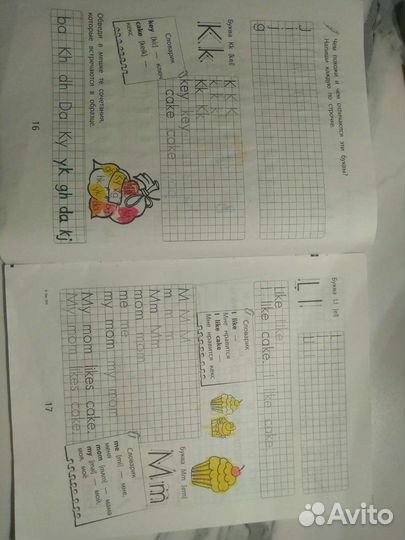 Чем похожи и чем отличаются эти буквы?
Напиши каждую по строчке.
i
j
i
j
g
Буква Kk [kei]
K k
K K K
k k k
Kk Kk
key key
cake cake
Словарик
key [ki:] — ключ
cake [keik] —
кекс
Обведи в мешке те сочетания,
которые встречаются в образце.
ba Kh dh Da Ky yk gh da kj
16
Буква Ll [el]
L l
Like
I like cake. I like cake.
Словарик
I like —
Мне нравится
I like cake —
Мне нравится кекс
Буква Mm [em]
Mm
M M M
m m
Mm Mm
mom mom
me me
my mom my mom
My mom likes cake.
My mom likes cake.
Словарик
me [mi] — мне,
меня
mom [mɒm] — мама
my [mai] — мой,
моя, моё
17
Avito